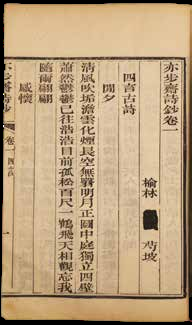 亦步齋詩鈔卷一
榆林 坡
四言古詩
閒夕
清風吹垢澹雲化煙長空無翳明月正圓中庭獨立四壁
蕭然鬱鬱已往浩浩目前孤松百尺一鶴飛天相觀忘我
隨爾翩翩
感懷
亦步齋詩鈔 卷一 四言古